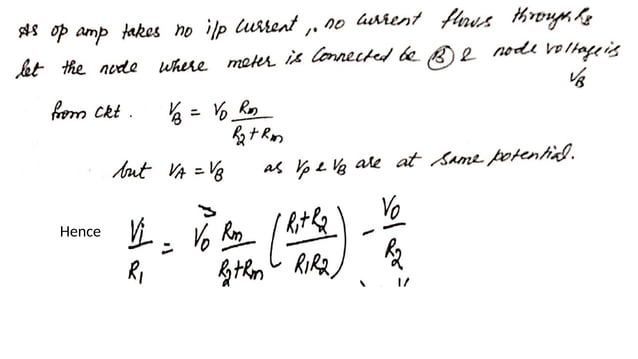 As op amp takes no i/p current, ∴ no current flows through R2
let the node where meter is connected be Ⓑ & node voltage is V_B
from ckt. V_B = V_0 R_m / (R_2 + R_m)
but V_A = V_B as V_P & V_B are at same potential.
Hence V_i / R_1 = V_0 R_m / (R_2 + R_m) ((R_1 + R_2) / (R_1 R_2)) - V_0 / R_2